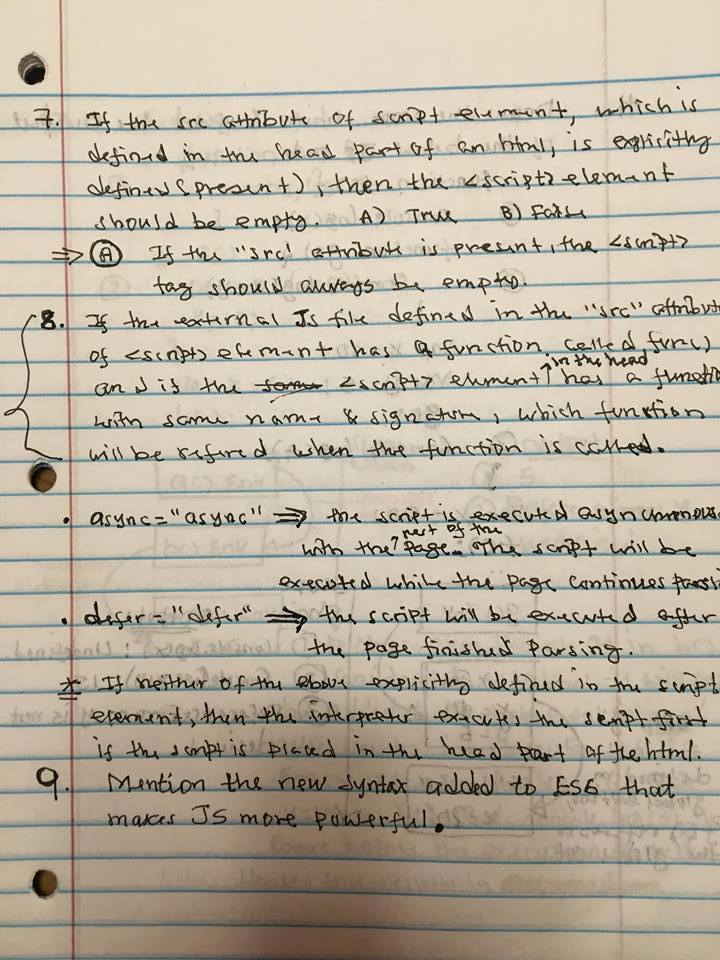 7. If the src attribute of script element, which is
defined in the head part of an html, is explicitly
defined (present), then the <script> element
should be empty. A) True B) False
⇒ Ⓐ If the "src' attribute is present, the <script>
tag should always be empty.
8. If the external Js file defined in the "src" attribut
of <script> element has a function called func)
and if the <script> element ↑ in the head has a functio
with same name & signature, which function
will be refered when the function is called.
• async="async" ⇒ the script is executed asynchronous
with the ↑ rest of the page. The script will be
executed while the page continues parsi
• defer="defer" ⇒ the script will be executed after
the page finished parsing.
* If neither of the above explicitly defined in the script
element, then the interpreter executes the script first
if the script is placed in the head part of the html.
9. Mention the new syntax added to ES6 that
makes JS more powerful.